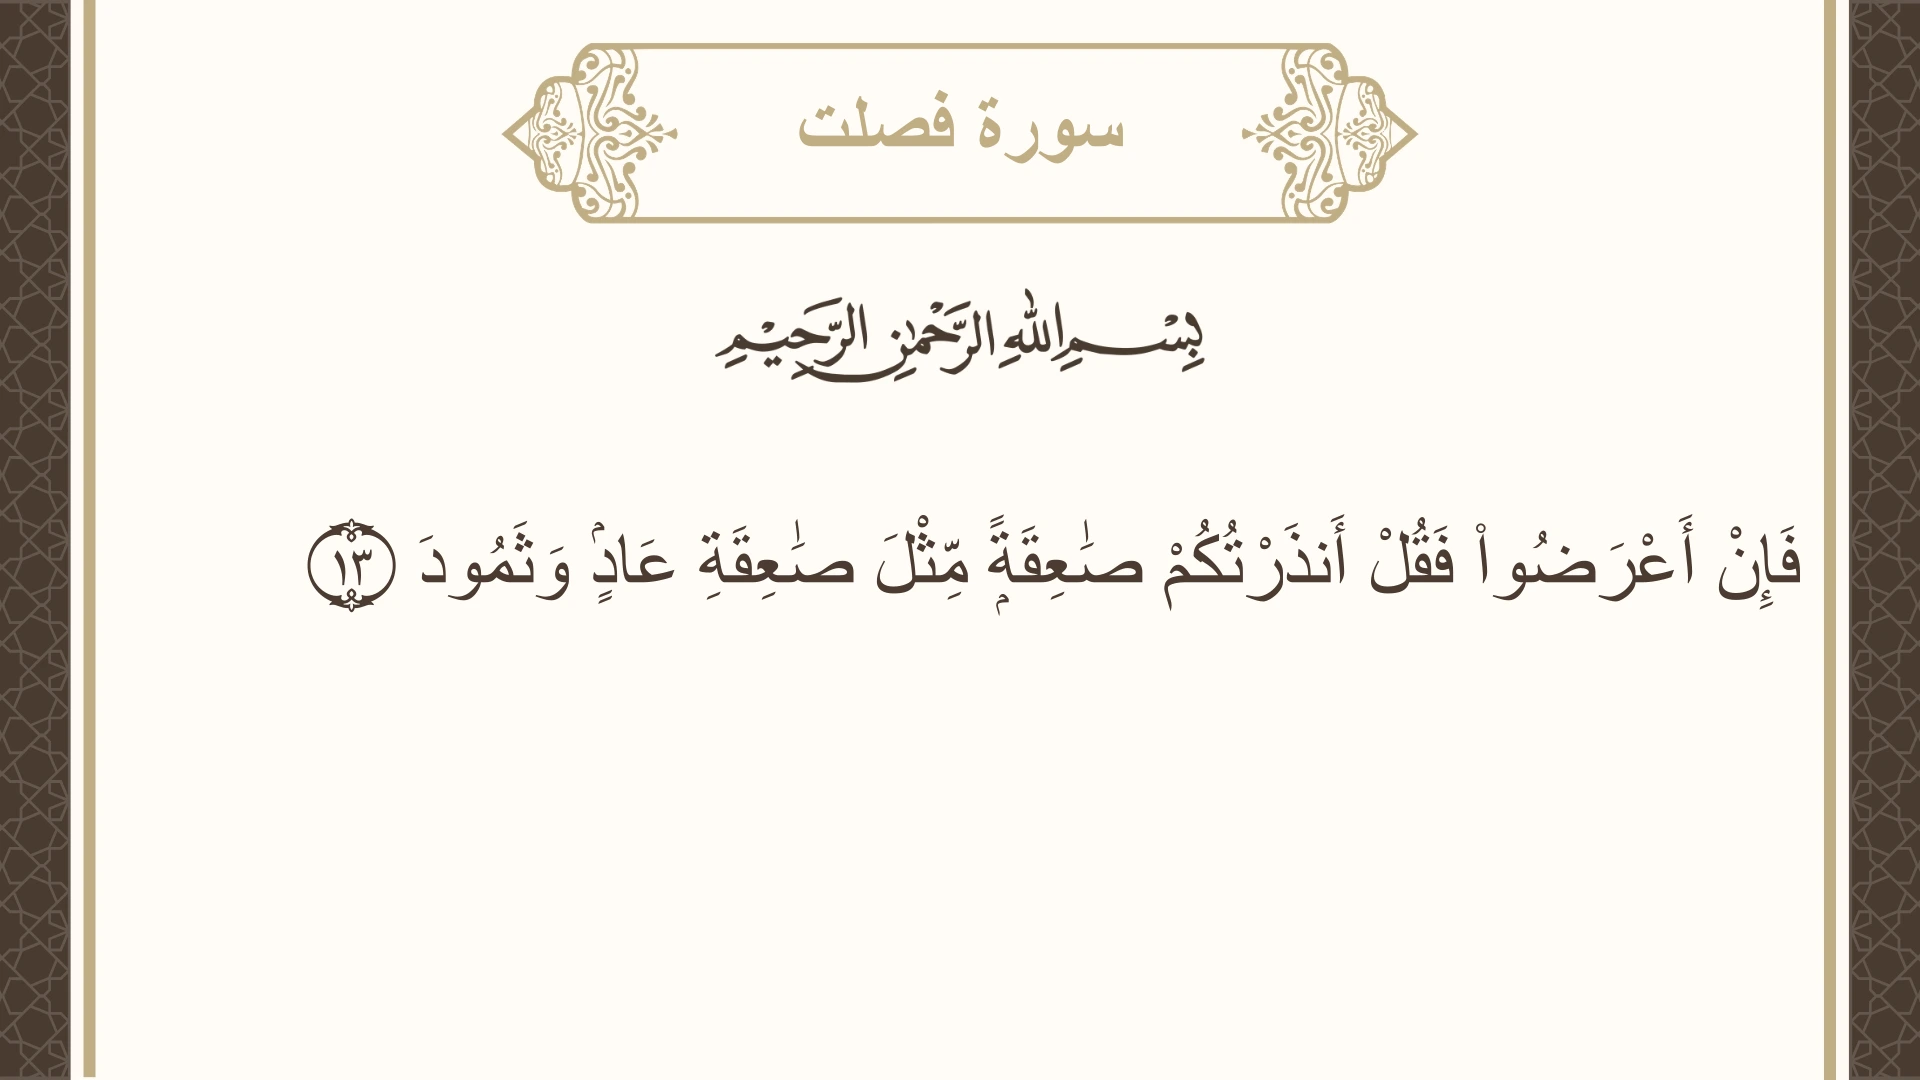 سورة فصلت
بِسْمِ اللهِ الرَّحْمٰنِ الرَّحِيْمِ
فَإِنْ أَعْرَضُوا۟ فَقُلْ أَنذَرْتُكُمْ صَـٰعِقَةًۭ مِّثْلَ صَـٰعِقَةِ عَادٍۢ وَثَمُودَ ١٣